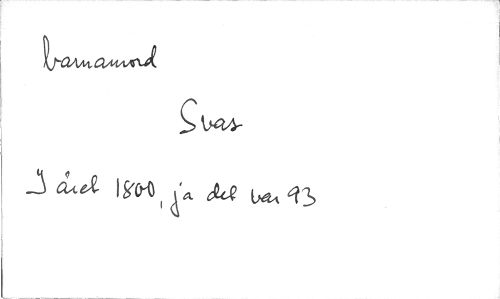 barnamord
Svar
I året 1800, ja det var 93